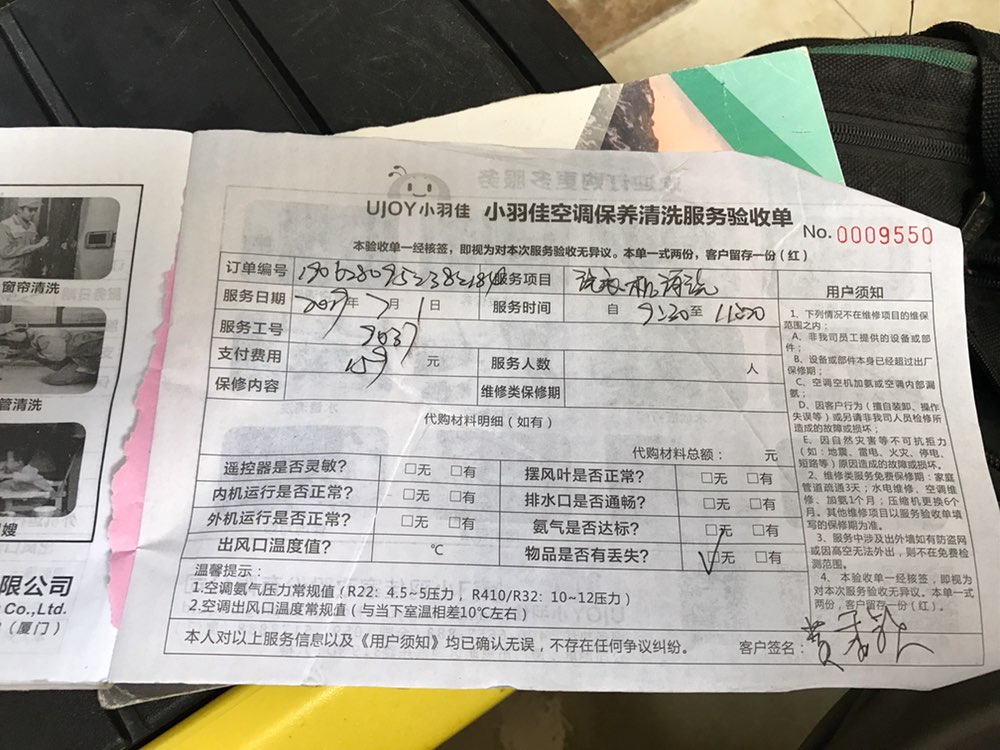 UJOY小羽佳 小羽佳空调保养清洗服务验收单
No.0009550
本验收单一经核签，即视为对本次服务验收无异议。本单一式两份，客户留存一份（红）
订单编号 服务项目 洗衣机清洗
服务日期 2019年7月1日 服务时间 自 9:20 至 11:00
服务工号
支付费用 159 元 服务人数 人
保修内容 维修类保修期
代购材料明细（如有）
代购材料总额： 元
遥控器是否灵敏？ □无 □有 摆风叶是否正常？ □无 □有
内机运行是否正常？ □无 □有 排水口是否通畅？ □无 □有
外机运行是否正常？ □无 □有 氨气是否达标？ □无 □有
出风口温度值？ ℃ 物品是否有丢失？ □无 □有
温馨提示：
1.空调氨气压力常规值（R22：4.5~5压力，R410/R32：10~12压力）
2.空调出风口温度常规值（与当下室温相差10℃左右）
本人对以上服务信息以及《用户须知》均已确认无误，不存在任何争议纠纷。 客户签名：
用户须知
1、下列情况不在维修项目的维保
范围之内：
A、非我司员工提供的设备或部
件；
B、设备或部件本身已经超过出厂
保修期；
C、空调空机加氨或空调内部漏
氨；
D、因客户行为（擅自装卸、操作
失误等）或另请非我司人员检修所
造成的故障或损坏；
E、因自然灾害等不可抗拒力
（如：地震、雷电、火灾、停电、
短路等）原因造成的故障或损坏。
2、维修类服务免费保修期：家庭
管道疏通3天；水电维修、空调维
修、加氨1个月；压缩机更换6个
月。其他维修项目以服务验收单填
写的保修期为准。
3、服务中涉及出外墙如有防盗网
或因高空无法外出，则不在免费检
测范围。
4、本验收单一经核签，即视为
对本次服务验收无异议。本单一式
两份，客户留存一份（红）。
窗帘清洗
管清洗
嫂
限公司
Co.,Ltd.
（厦门）